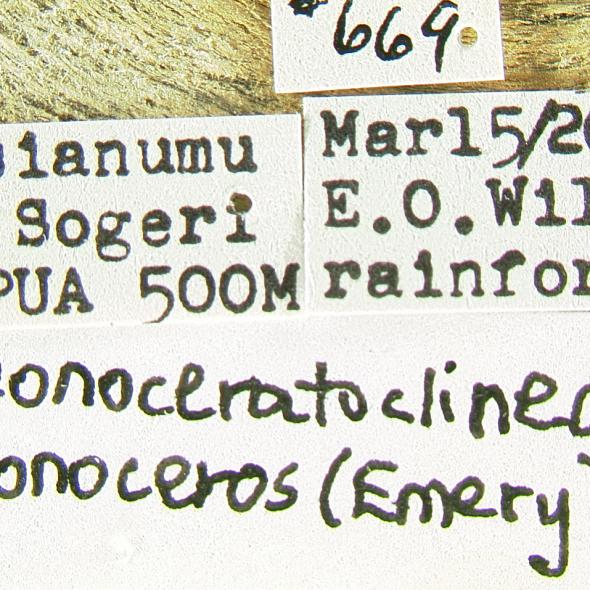 #669
ianumu
Sogeri
PUA 500M
Mar15/20
E.O.Wil
rainfor
onoceratocline
onoceros (Emery)